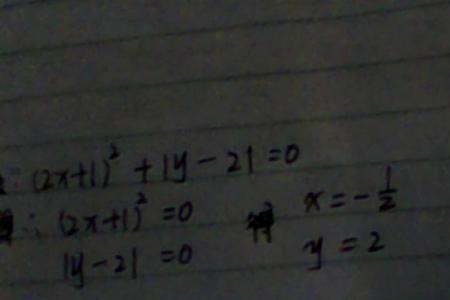 ∵ (2x+1)² + |y-2| = 0
∴ (2x+1)² = 0 得 x = -1/2
|y-2| = 0 y = 2